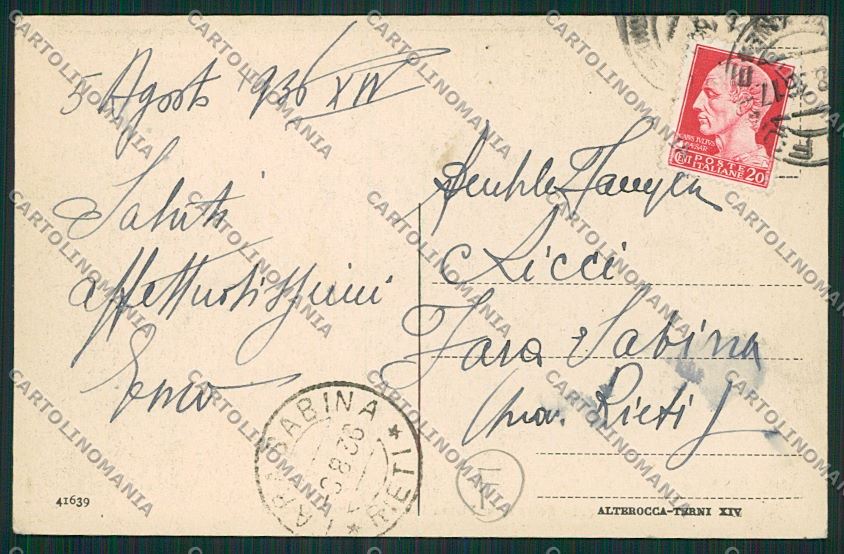 5 Agosto 936 XIV
Saluti
affettuosissimi
Famiglia
Ricci
Fara Sabina
(prov. Rieti)
CAIUS JULIUS
CAESAR
CENT POSTE
ITALIANE 20
FARA SABINA * RIETI *
8.36
41639
ALTEROCCA-TERNI XIV
CARTOLINOMANIA